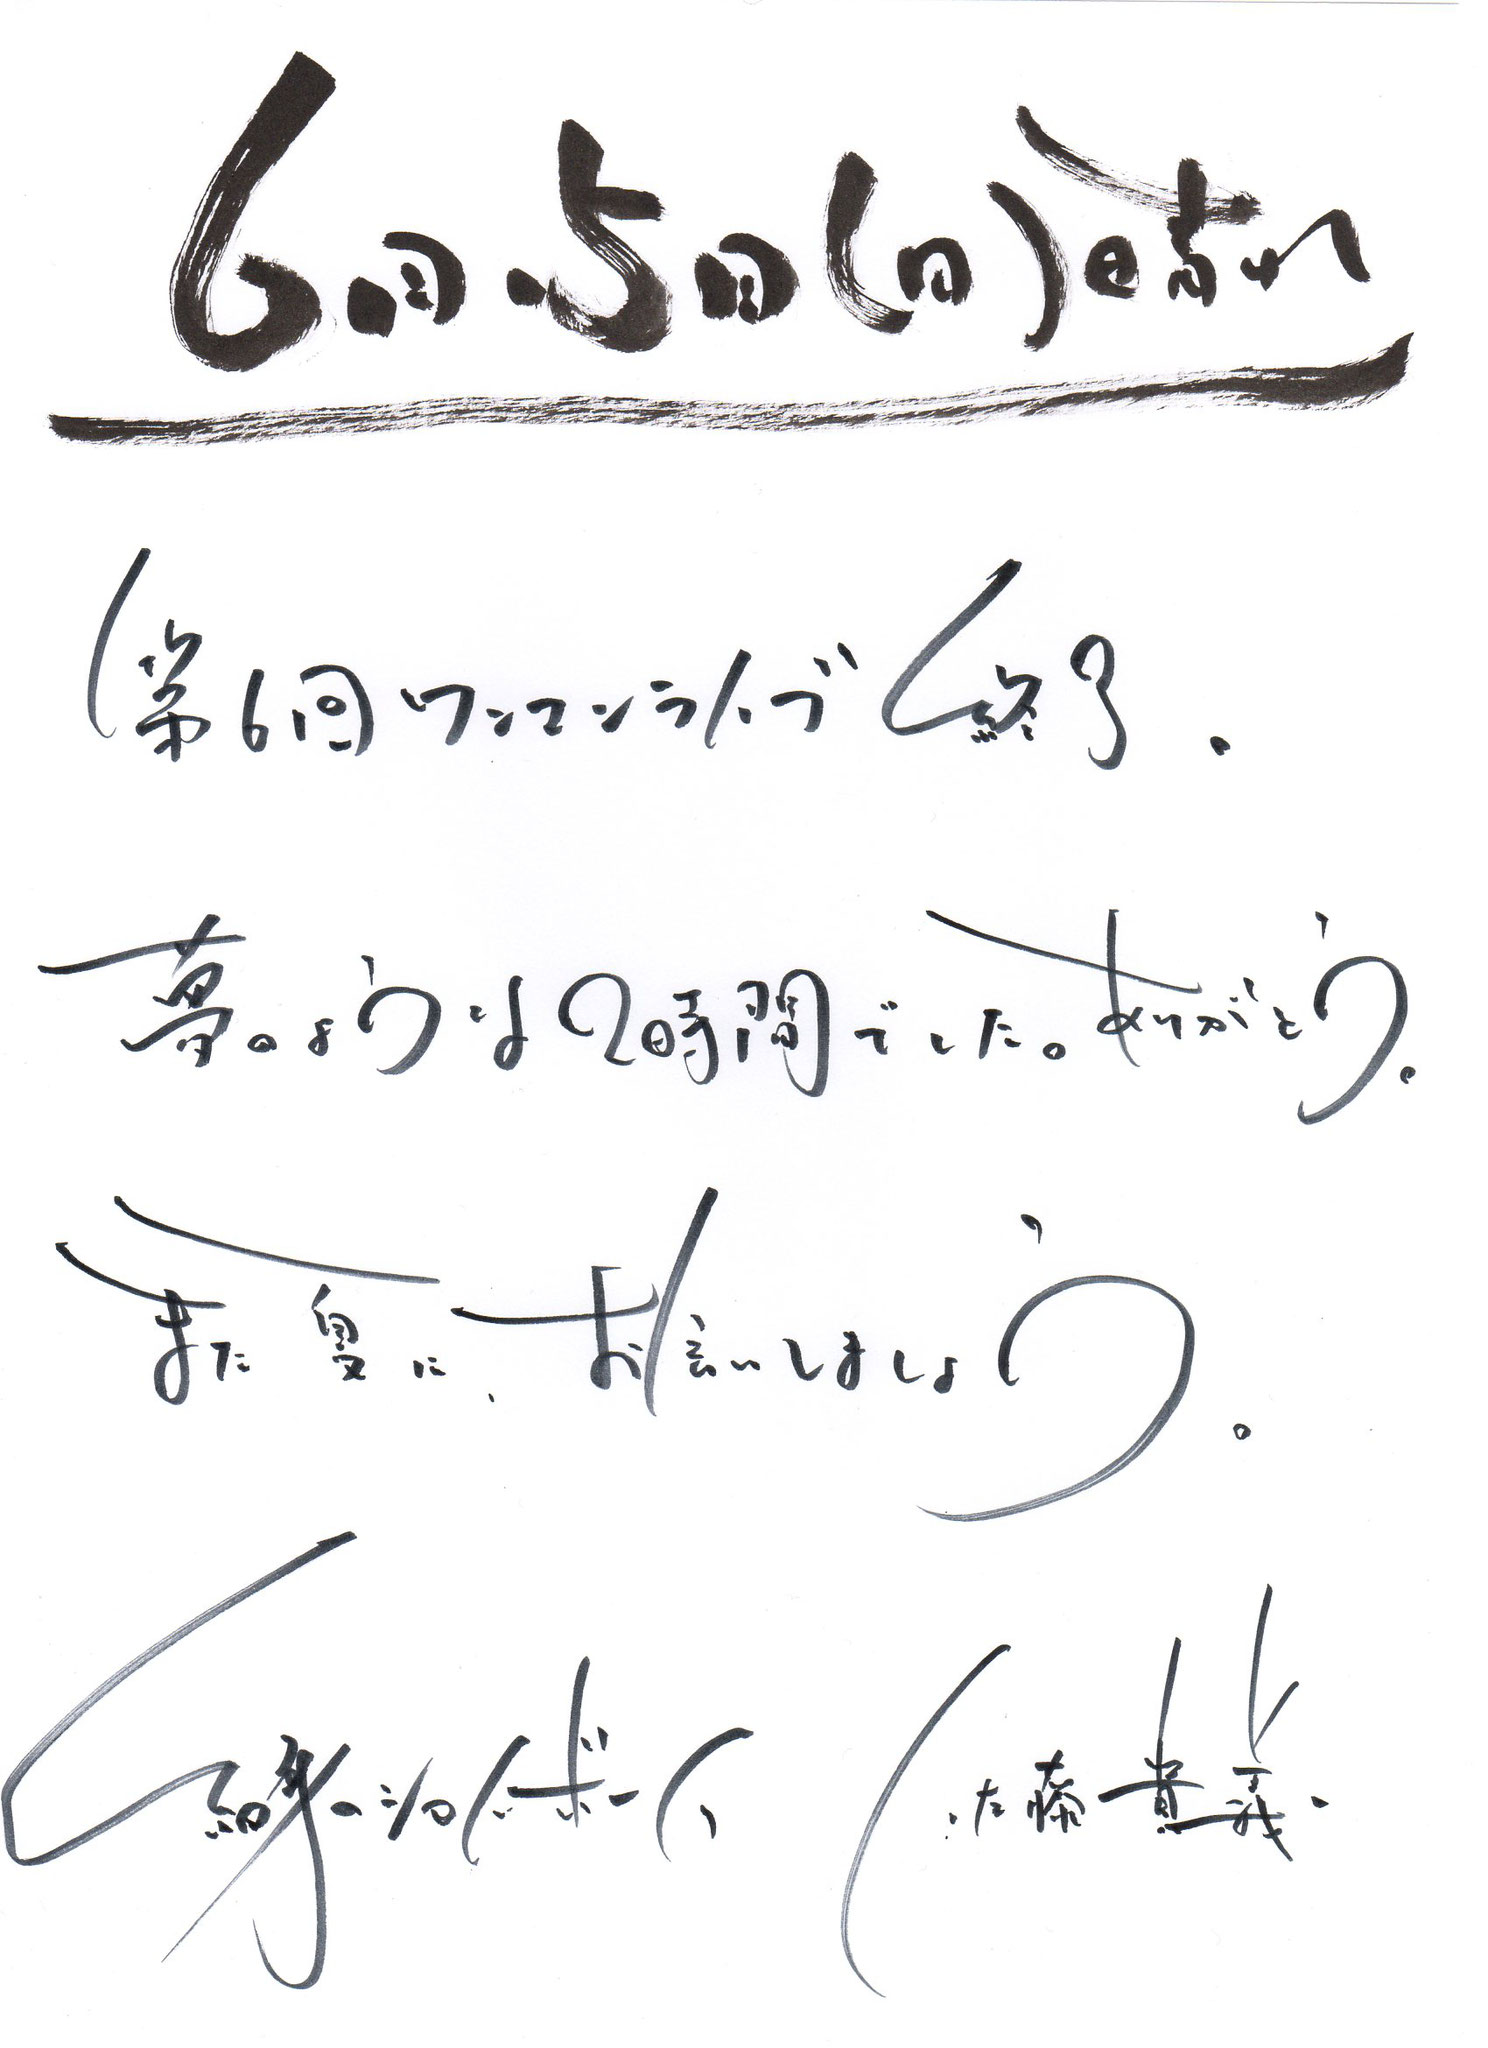 6月5日(日)晴れ
第6回ワンマンライブ終了.
夢のような2時間でした。ありがとう.
また夏に、お会いしましょう。
細身の ボーイ、 佐藤貴義.